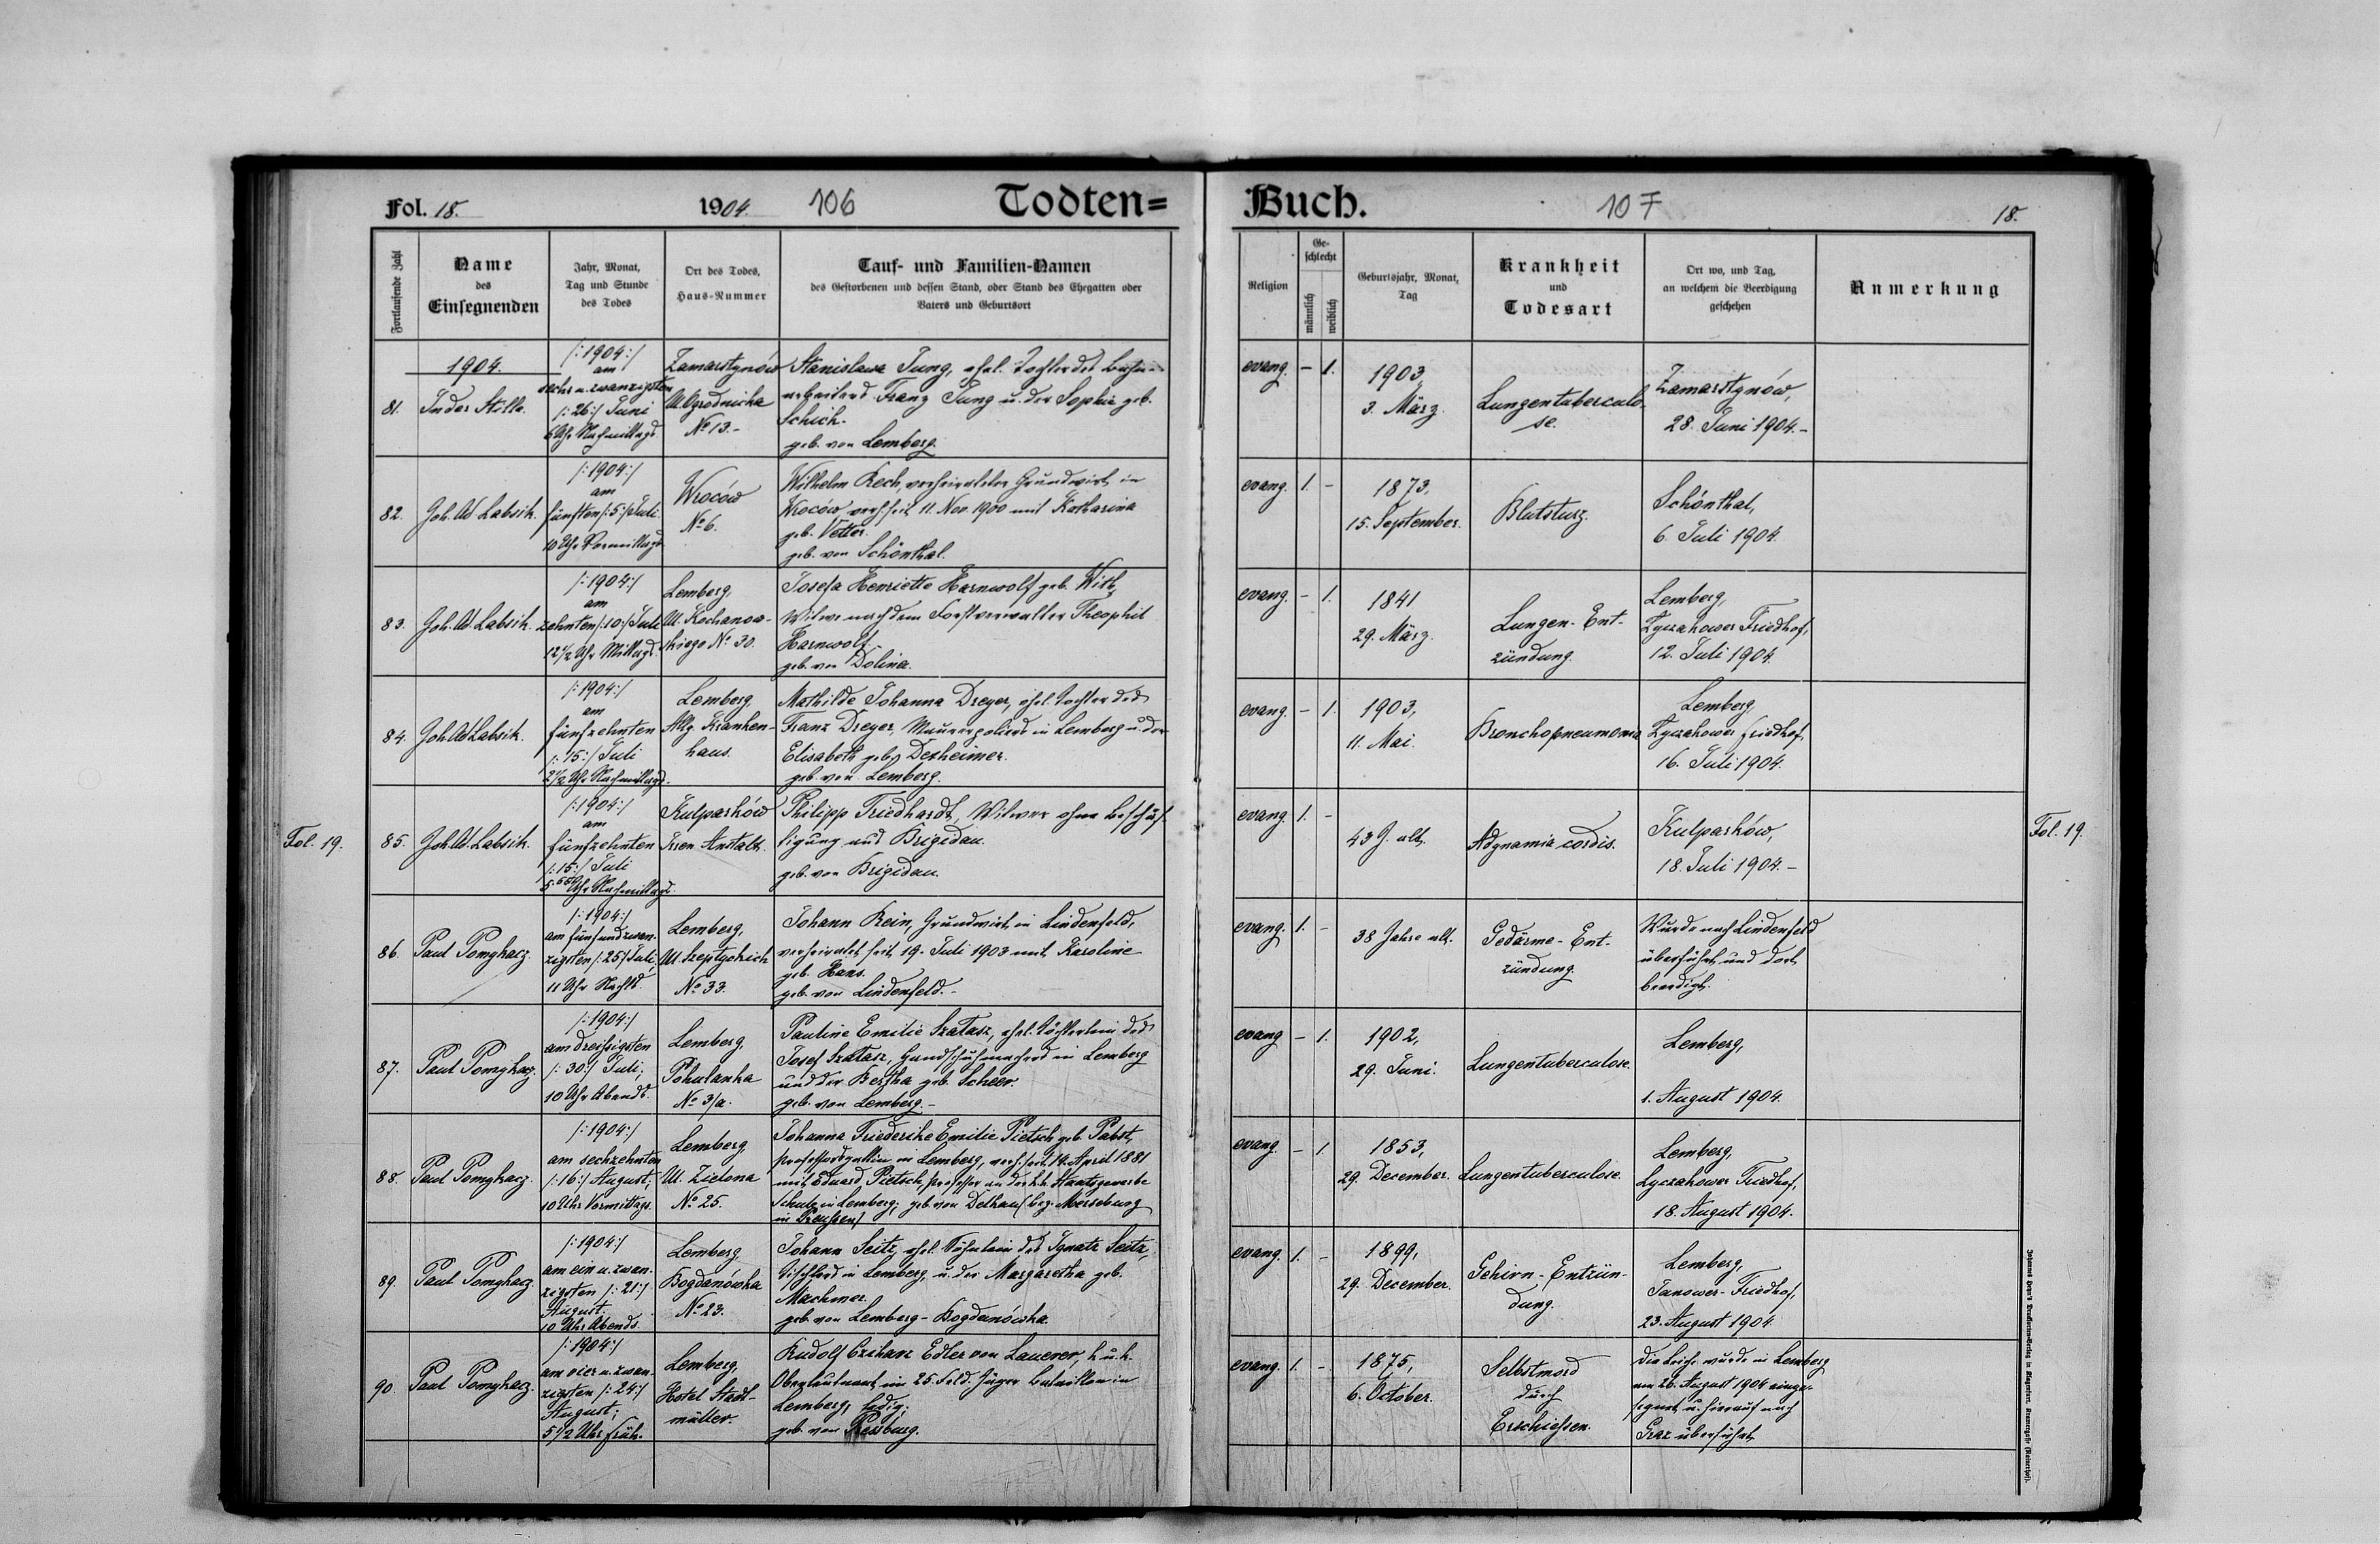 Fol. 18.
1904.
106
Todten=
Buch.
107
18.
Fortlaufende Zahl
Name
des
Einsegnenden
Jahr, Monat,
Tag und Stunde
des Todes
Ort des Todes,
Haus-Nummer
Tauf- und Familien-Namen
des Gestorbenen und dessen Stand, oder Stand des Ehegatten oder
Vaters und Geburtsort
Religion
Ge-
schlecht
männlich
weiblich
Geburtsjahr, Monat,
Tag
Krankheit
und
Todesart
Ort wo, und Tag,
an welchem die Beerdigung
geschehen
Anmerkung
1904.
81.
In der Stille.
/:1904:/
am
sechs u. zwanzigsten
/:26:/ Juni
6 Uhr Nachmittags
Zamarstynów
Ul. Ogrodnicka
No 13.-
Stanislawa Jung, ehel. Tochter des
arbeiters Franz Jung u. der Sophie geb.
Schich.
geb. von Lemberg.
evang. - 1.
1903,
3. März.
Lungentuberculo-
se.
Zamarstynów,
28. Juni 1904.-
82.
Joh. Ad Labsik.
/:1904:/
am
fünften /:5:/ Juli
10 Uhr Vormittags
Wroców
No 6.
Wilhelm Rech, verheirateter Grundwirt in
Wroców verh. seit 11. Nov. 1900 mit Katharina
geb. Vetter.
geb. von Schönthal.
evang. 1. -
1873,
15. September.
Blutsturz.
Schönthal,
6. Juli 1904.
83.
Joh. Ad. Labsik.
/:1904:/
am
zehnten /:10:/ Juli
12 1/2 Uhr Mittags.
Lemberg,
Ul. Kochanow-
skiego No 30.
Josefa Henriette Harnwolf geb.
Witwe nach dem Forstverwalter Theophil
Harnwolf.
geb. von Dolina.
evang. - 1.
1841
29. März.
Lungen-Ent-
zündung.
Lemberg,
Lyczakower Friedhof,
12. Juli 1904.
84.
Joh. Ad Labsik.
/:1904:/
am
fünfzehnten
/:15:/ Juli
2 1/2 Uhr Nachmittags.
Lemberg,
Allg. Kranken-
haus.
Mathilde Johanna Dreyer, ehel. Tochter des
Franz Dreyer, Maurerpoliers in Lemberg u. der
Elisabeth geb. Dexheimer.
geb. von Lemberg.
evang. - 1.
1903,
11. Mai.
Bronchopneumonia
Lemberg,
Lyczakower Friedhof,
16. Juli 1904.
Fol. 19.
85.
Joh. Ad. Labsik.
/:1904:/
am
fünfzehnten
/:15:/ Juli
Uhr Nachmittags.
Kulparków
Irren Anstalt.
Philipp Friedhardt, Witwer ohne Beschäf-
tigung aus Brigidau.
geb. von Brigidau.
evang. 1. -
43 J. alt.
Adynamia cordis.
Kulparków,
18. Juli 1904.-
Fol. 19.
86.
Paul Pomykacz.
/:1904:/
am fünfundzwan-
zigsten /:25:/ Juli,
11 Uhr Nachts.
Lemberg,
Ul. Szeptyckich
No 33.
Johann Rein, Grundwirt in Lindenfeld,
verheiratet seit 19. Juli 1903 mit Karoline
geb. Hans.
geb. von Lindenfeld.-
evang. 1. -
38 Jahre alt.
Gedärme-Ent-
zündung.
Wurde nach Lindenfeld
überführt und dort
beerdigt.
87.
Paul Pomykacz.
/:1904:/
am dreissigsten
/:30:/ Juli;
10 Uhr Abends.
Lemberg,
Pohulanka
No 3/a.
Pauline Emilie Szatasz, ehel. Töchterlein des
Josef Szatasz, Handschuhmachers in Lemberg
und der Bertha geb. Scheer.
geb. von Lemberg.-
evang - 1.
1902,
29. Juni.
Lungentuberculose.
Lemberg,
1. August 1904.
88.
Paul Pomykacz.
/:1904:/
am sechzehnten
/:16:/ August;
10 Uhr Vormittags.
Lemberg,
Ul. Zielona
No 25.
Johanna Friederike Emilie Pietsch geb. Pabst,
Professorsgattin in Lemberg, verh. seit 14. April 1881
mit Eduard Pietsch, Professor an der k.k. Staatsgewerbe
Schule in Lemberg; geb. von (bez. Merseburg
in Preußen)
evang. - 1
1853,
29. December.
Lungentuberculose.
Lemberg,
Lyczakower Friedhof,
18. August 1904.
89.
Paul Pomykacz.
/:1904:/
am ein u. zwan-
zigsten /:21:/
August;
10 Uhr Abends.
Lemberg,
Bogdanówka
No 23.
Johann Seitz, ehel. Söhnlein des Ignatz Seitz,
Tischlers in Lemberg u. der Margaretha geb.
Machmer.
geb. von Lemberg-Bogdanówka.
evang. 1. -
1899,
29. December.
Gehirn-Entzün-
dung.
Lemberg,
Janower-Friedhof,
23. August 1904.
90.
Paul Pomykacz.
/:1904:/
am vier u. zwan-
zigsten /:24:/
August;
5 1/2 Uhr früh.
Lemberg,
Hotel Stadt-
müller.
Rudolf Edler von Lauerer, k. u. k.
Oberleutnant im 25. Feld-Jäger Bataillon in
Lemberg, ledig;
geb. von Pressburg.
evang. 1. -
1875,
6. October.
Selbstmord
durch
Erschiessen.
Die Leiche wurde in Lemberg
am 26. August 1904 einge-
segnet u. hierauf nach
Graz überführt